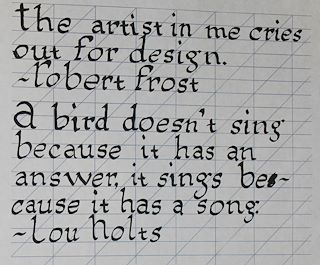 the artist in me cries
out for design.
~robert frost
a bird doesn't sing
because it has an
answer, it sings be-
cause it has a song.
~Lou Holts